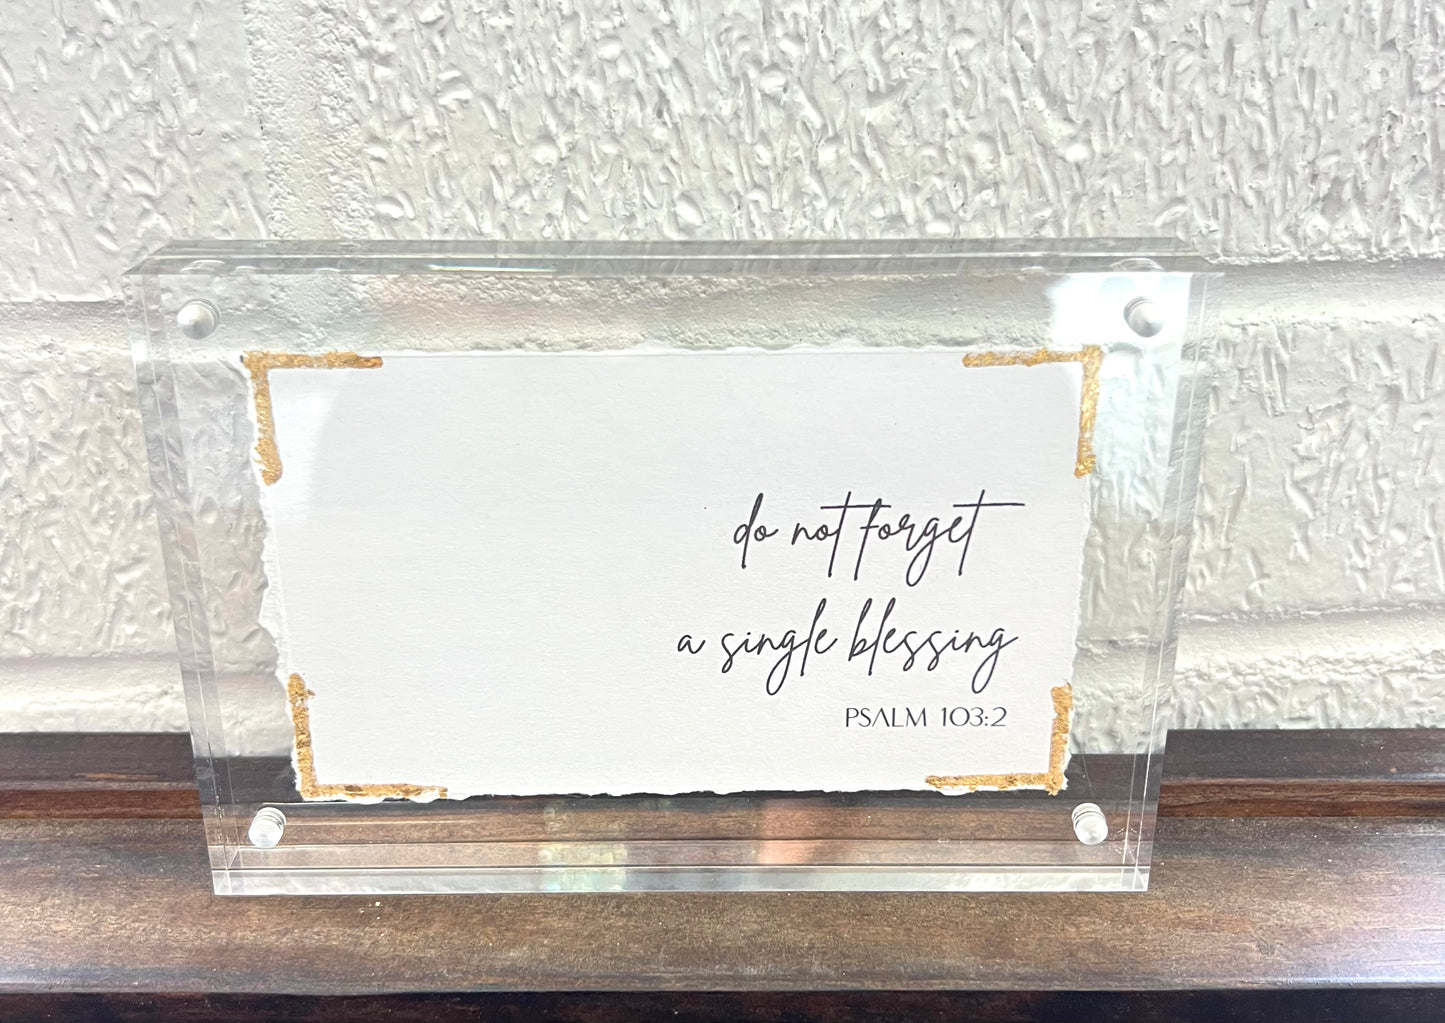 do not forget
a single blessing
PSALM 103:2